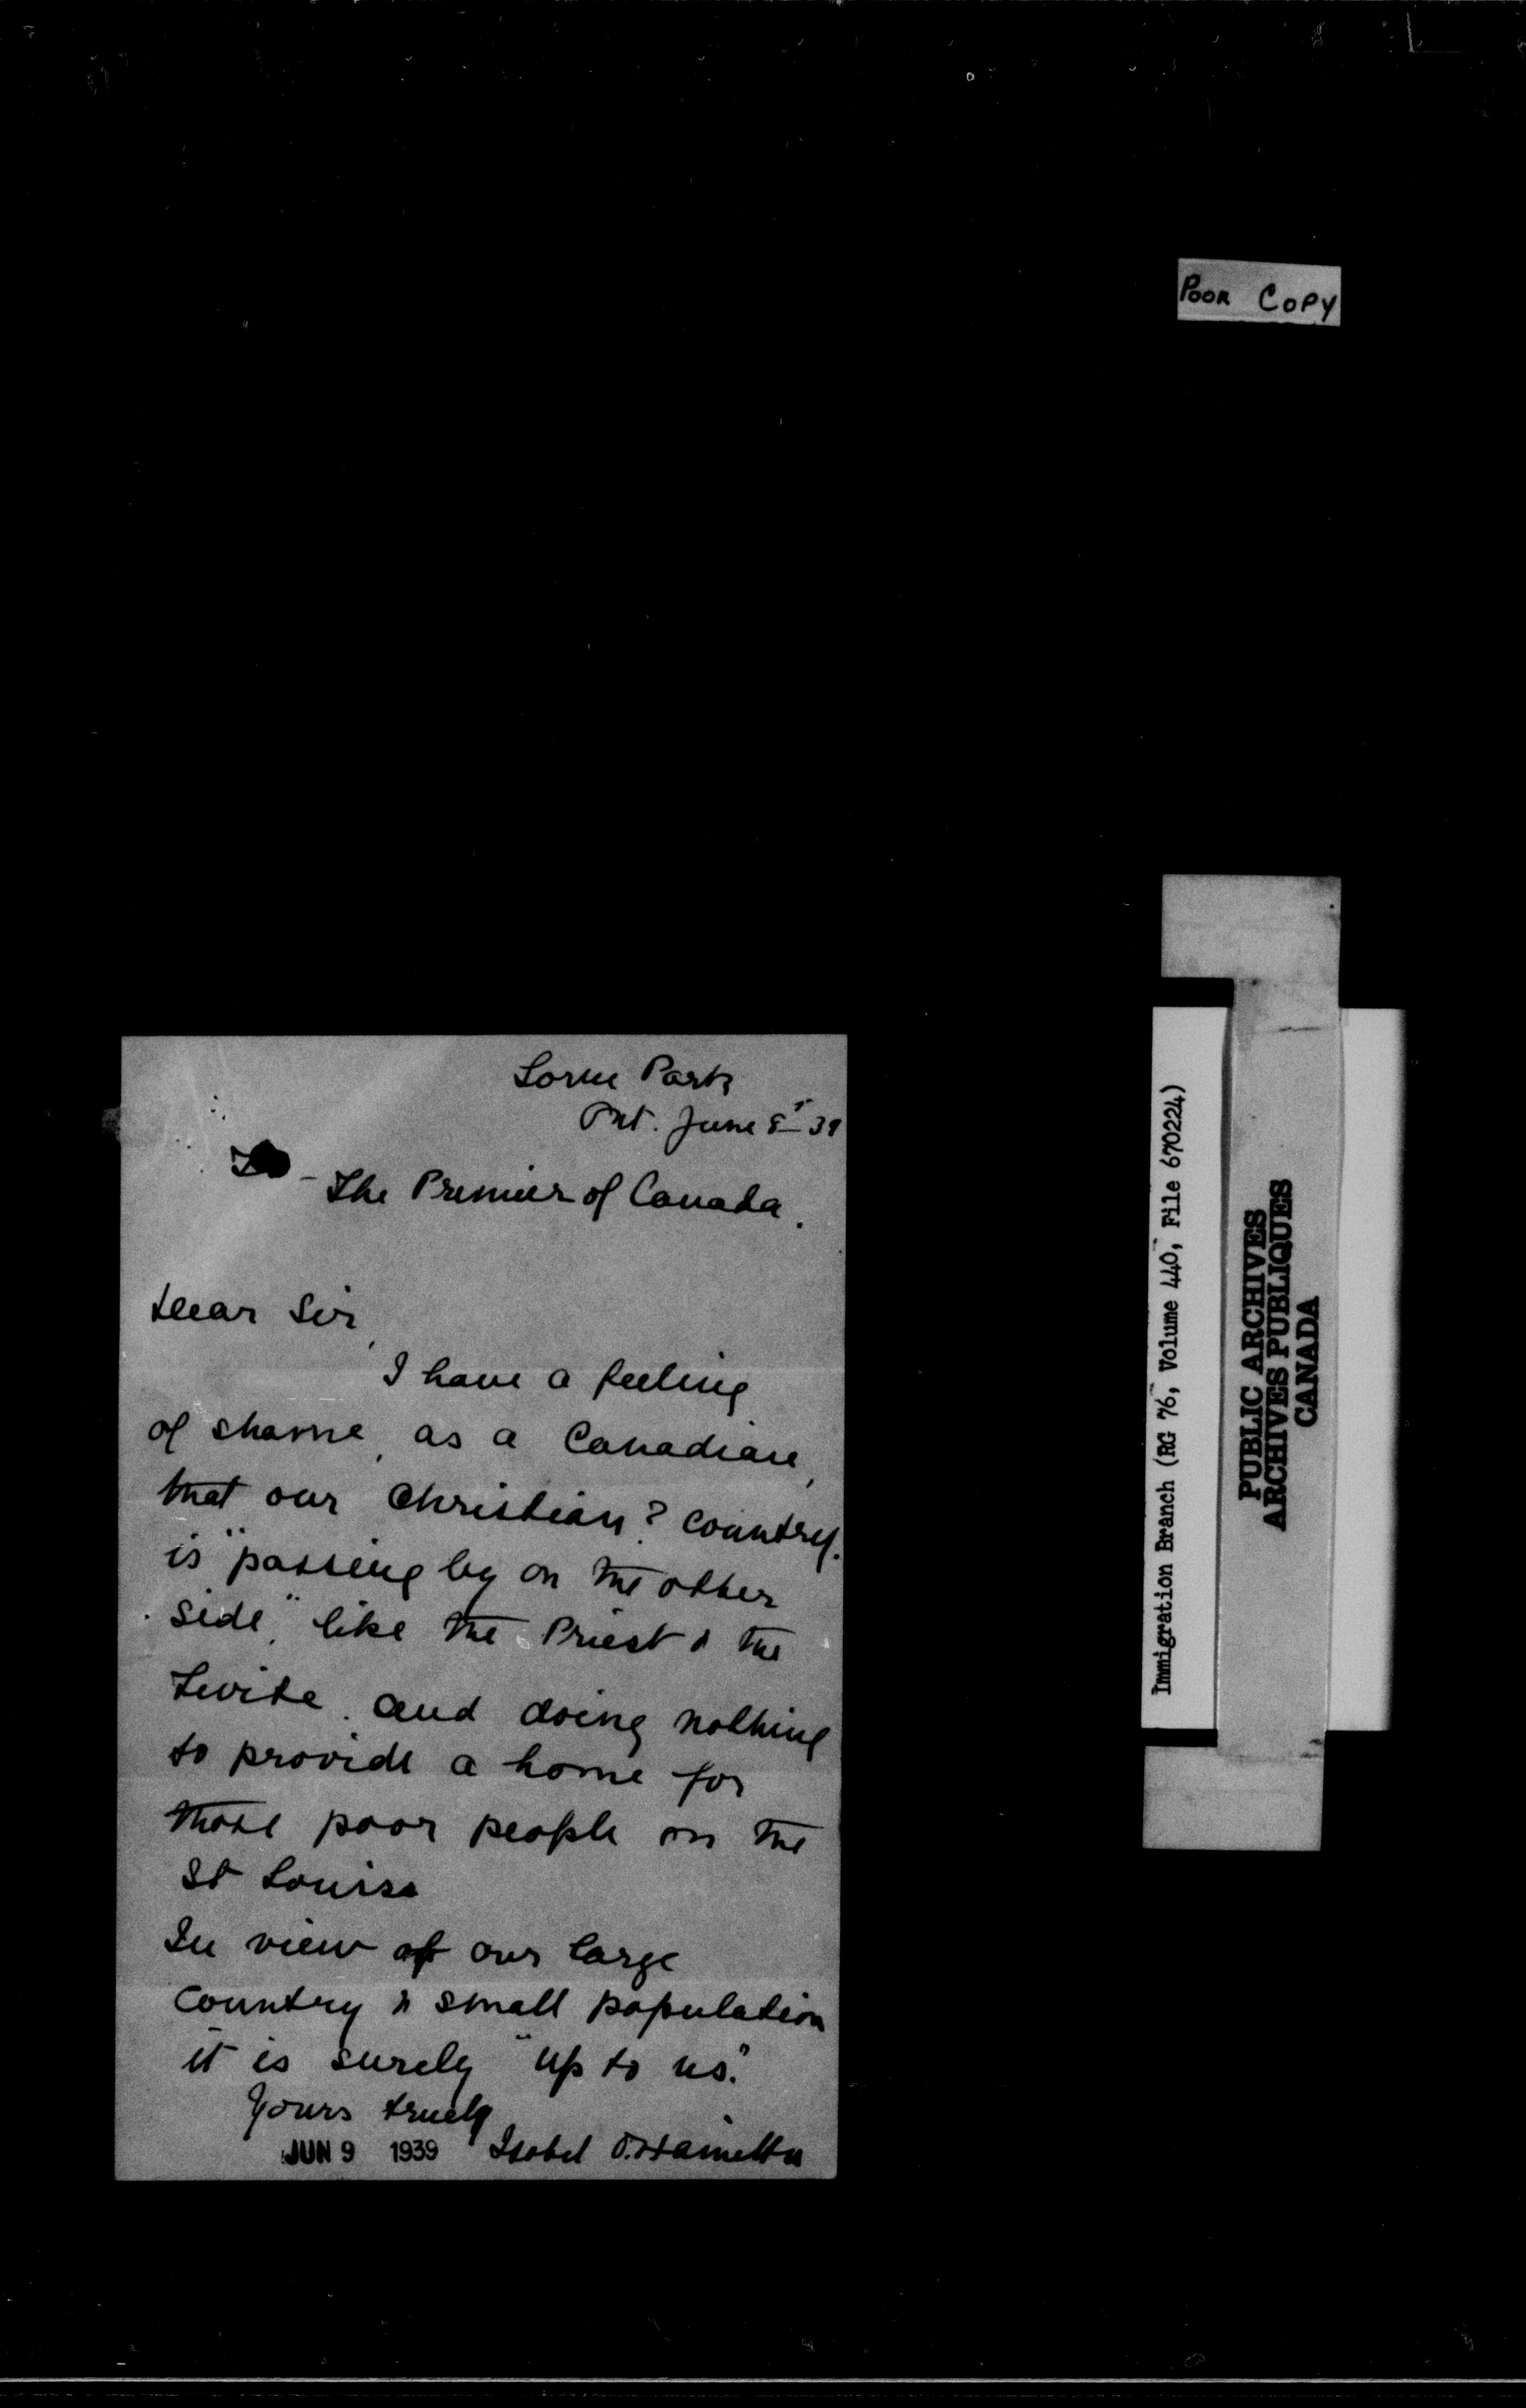 POOR COPY
Lorne Park
Ont. June 8th 39
To - The Premier of Canada.
Dear Sir,
I have a feeling
of shame, as a Canadian,
that our Christian? country.
is "passing by on the other
side", like the Priest & the
Levite. and doing nothing
to provide a home for
those poor people on the
St Louis.
In view of our large
country & small population
it is surely "up to us."
Yours truely
JUN 9 1939 Isobel O. Hamilton
Immigration Branch (RG 76, Volume 440, File 670224)
PUBLIC ARCHIVES
ARCHIVES PUBLIQUES
CANADA